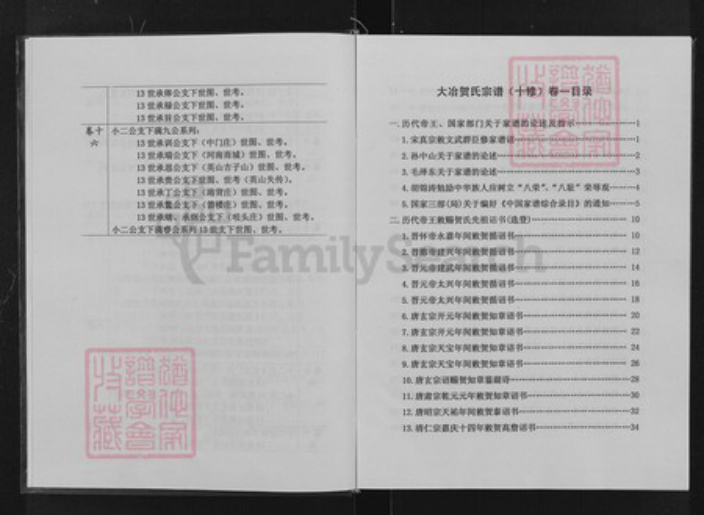 13 世承卿公支下世图、世考。
13 世承绿公支下世图、世考。
13 世承首公支下世图、世考。
卷十六
小二公支下满九公系列:
13 世承训公支下（中门庄）世图、世考。
13 世承瑞公支下（河南商城）世图、世考。
13 世承思公支下（英山古子山）世图、世考。
13 世承贵公支下世图、世考（英山失传）。
13 世承丁公支下（港背庄）世图、世考。
13 世承公支下（曾楼庄）世图、世考。
13 世承、承别公支下（咀头庄）世图、世考。
小二公支下满公系列 13 世支下世图、世考。
FamilySearch
大冶贺氏宗谱（十修）卷一目录
一.历代帝王、国家部门关于家谱的论述及指示 1
1.宋真宗敕文武群臣修家谱诏 1
2.孙中山关于家谱的论述 2
3.毛泽东关于家谱的论述 3
4.胡锦涛勉励中华族人应树立“八荣”、“八耻”荣辱观 4
5.国家三部(局)关于编好《中国家谱综合录目》的通知 5
二.历代帝王敕赐贺氏先祖诏书(选登) 10
1.晋怀帝永嘉年间敕贺循诏书 10
2.晋愍帝建兴年间敕贺循诏书 12
3.晋元帝建武年间敕贺循诏书 14
4.晋元帝太兴年间敕贺循诏书 16
5.晋元帝太兴年间敕贺循诏书 18
6.唐玄宗开元年间敕贺知章诏书 20
7.唐玄宗开元年间敕贺知章诏书 22
8.唐玄宗天宝年间敕贺知章诏书 24
9.唐玄宗天宝年间敕贺知章诏书 26
10.唐玄宗诏赐贺知章鉴湖诗 28
11.唐肃宗乾元元年敕贺知章诏书 30
12.唐昭宗天祐年间敕贺泰诏书 32
13.清仁宗嘉庆十四年敕贺高詹诏书 34